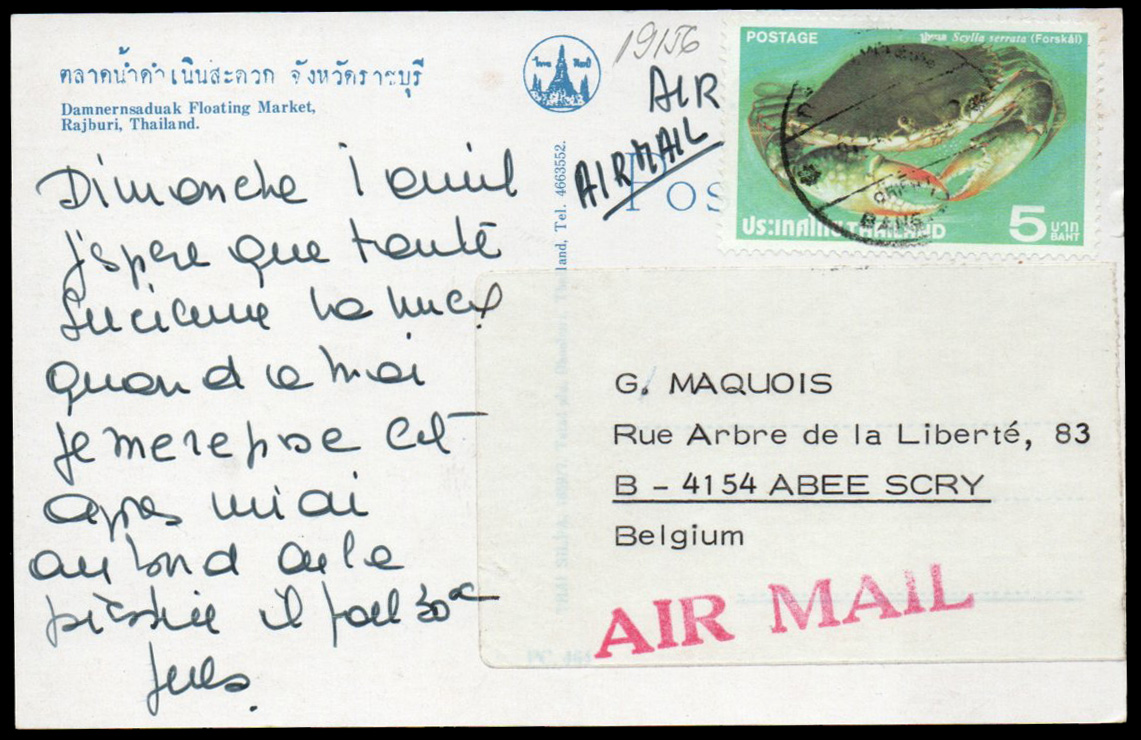 ตลาดน้ำดำเนินสะดวก จังหวัดราชบุรี
Damnernsaduak Floating Market,
Rajburi, Thailand.
Dimanche 1 avril
j'spere que
quand a moi
je me repose cet
apres midi
au bord de la
il fait 30°
Jules.
land, Tel. 4663552.
19156
AIR
AIRMAIL
POS
POSTAGE
ปูทะเล Scylla serrata (Forskål)
ประเทศไทย THAILAND
5 บาท
BAHT
G. MAQUOIS
Rue Arbre de la Liberté, 83
B - 4154 ABEE SCRY
Belgium
AIR MAIL